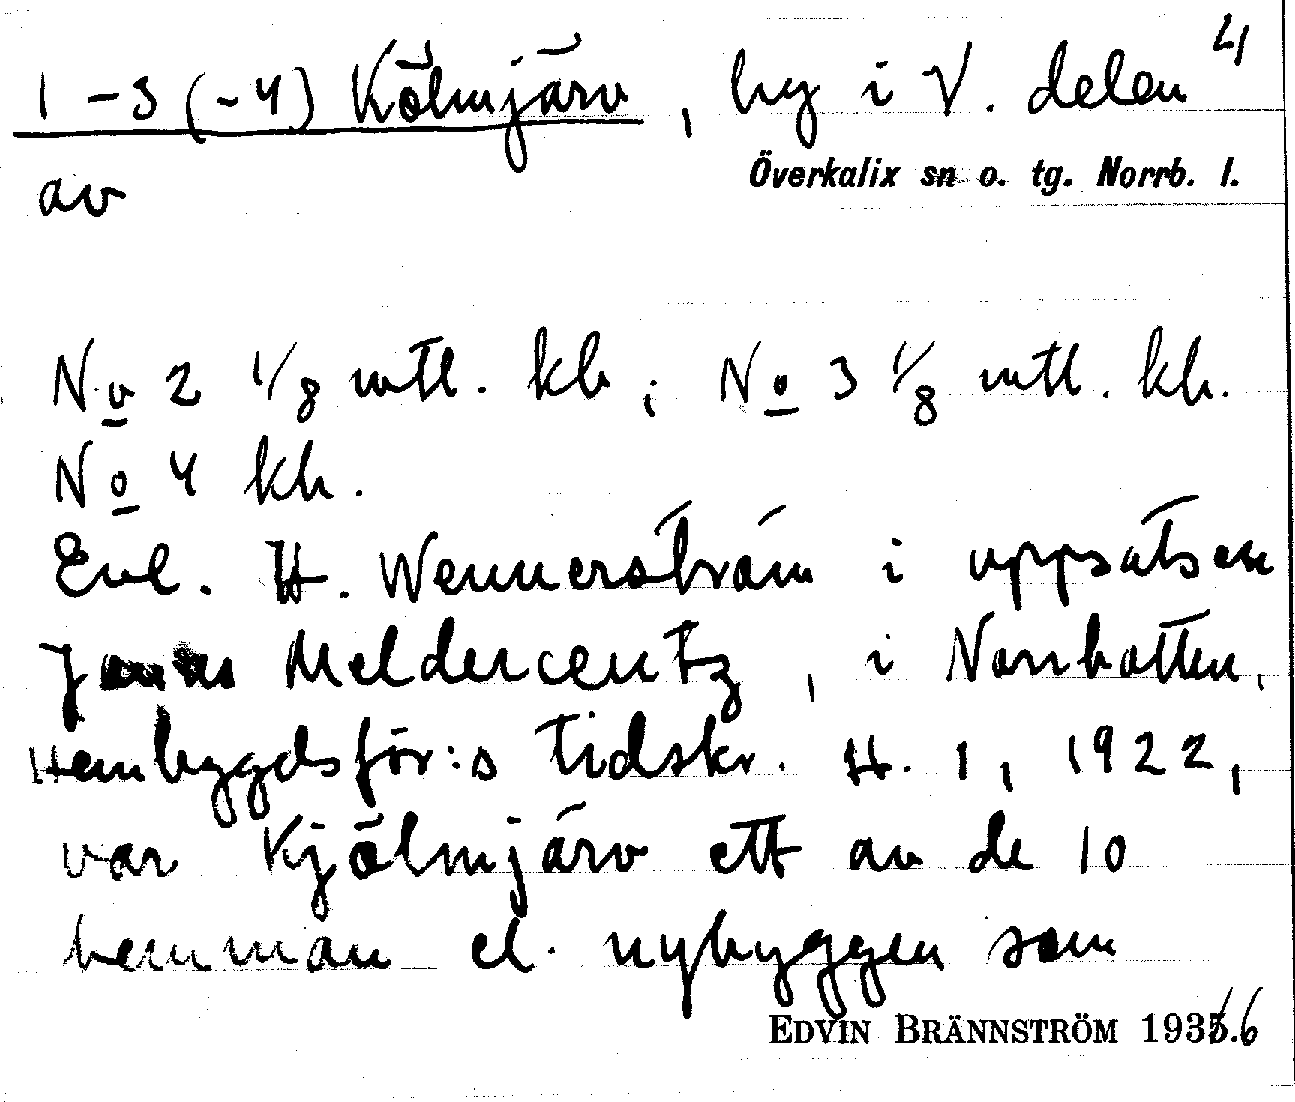 4
1 – 3 (– 4) Kölmjärv, by i V. delen
av Överkalix sn o. tg. Norrb. l.
No 2 1/8 mtl. kb; No 3 1/8 mtl. kh.
No 4 kh.
Enl. H. Wennerström i uppsatsen
Jonas Meldercreutz, i Norrbotten,
Hembygdsför:s tidskr. H. 1, 1922,
var Kjölmjärv ett av de 10
hemman el. nybyggen som
EDVIN BRÄNNSTRÖM 1936